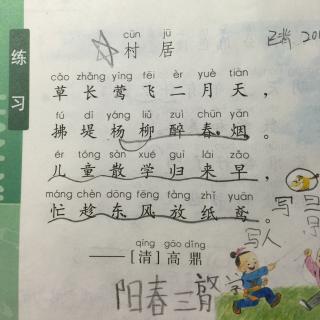 练习
cūn jū
村居
cǎo zhǎng yīng fēi èr yuè tiān
草长莺飞二月天，
fú dī yáng liǔ zuì chūn yān
拂堤杨柳醉春烟。
ér tóng sàn xué guī lái zǎo
儿童散学归来早，
máng chèn dōng fēng fàng zhǐ yuān
忙趁东风放纸鸢。
qīng gāo dǐng
——[清]高鼎
写
写人
阳春三
学